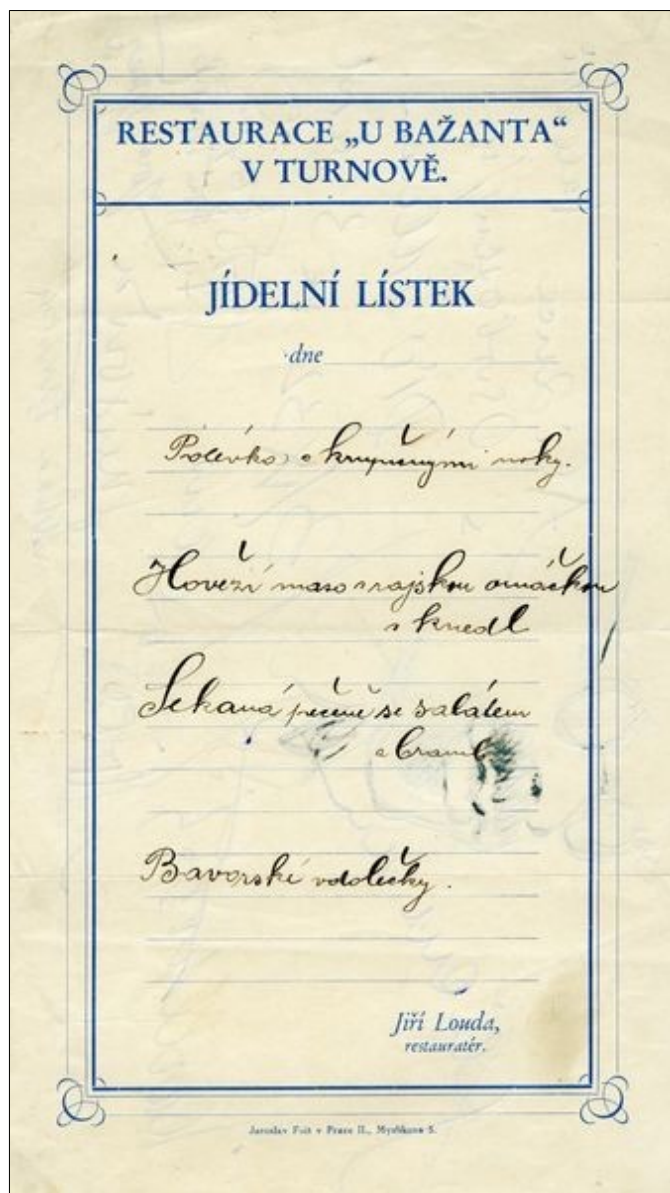 RESTAURACE „U BAŽANTA“
V TURNOVĚ.
JÍDELNÍ LÍSTEK
dne
Polévka s krupičnými noky.
Hovězí maso s rajskou omáčkou
s knedl
Sekaná pečeně se salátem
a bramb
Bavorské vdolečky.
Jiří Louda,
restauratér.
Jaroslav v Praze II., 5.